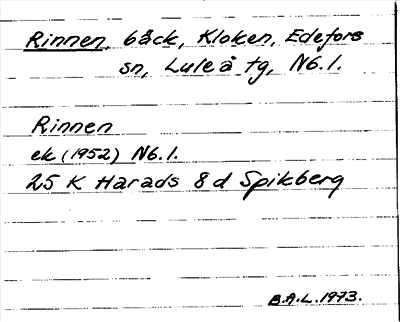 Rinnen, bäck, Kloken, Edefors
sn, Luleå tg, Nb.l.
Rinnen
ek (1952) Nb.l.
25 K Harads 8 d Spikberg
B.A.L. 1973.